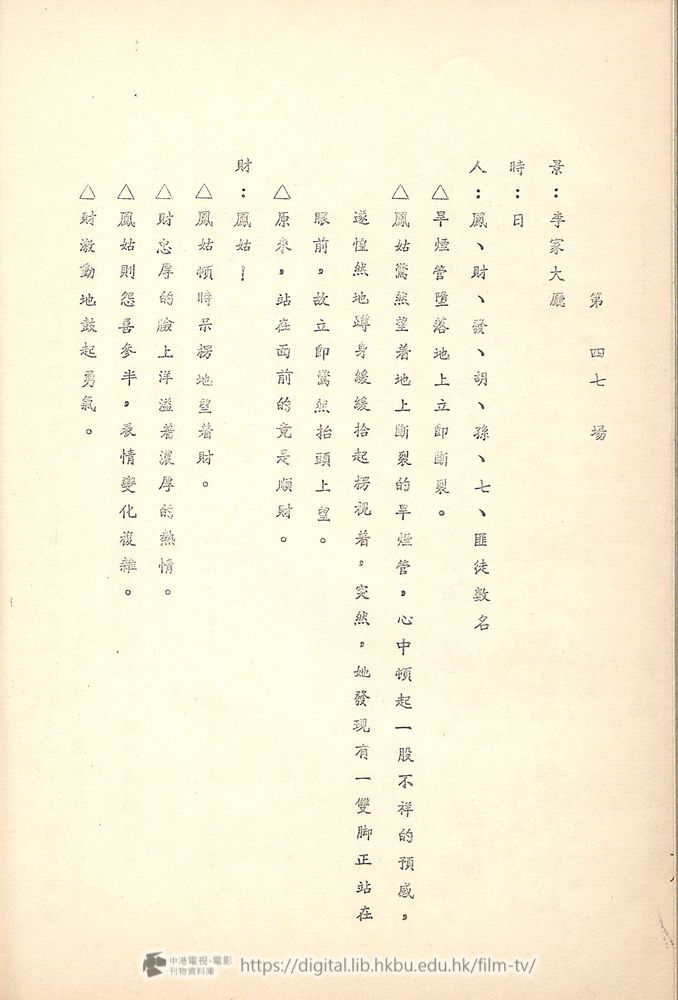 第四七場
景：李家大廳
時：日
人：鳳、財、發、胡、孫、七、匪徒數名
△旱煙管墮落地上立即斷裂。
△鳳姑驚然望着地上斷裂的旱煙管，心中頓起一股不祥的預感，
遂惶然地蹲身緩緩拾起楞視着，突然，她發現有一雙脚正站在
眼前，故立即驚然抬頭上望。
△原來，站在面前的竟是順財。
財：鳳姑！
△鳳姑頓時呆楞地望着財。
△財忠厚的臉上洋溢着濃厚的熱情。
△鳳姑則怨喜參半，表情變化複雜。
△財激動地鼓起勇氣。
中港電視·電影
刊物資料庫
https://digital.lib.hkbu.edu.hk/film-tv/